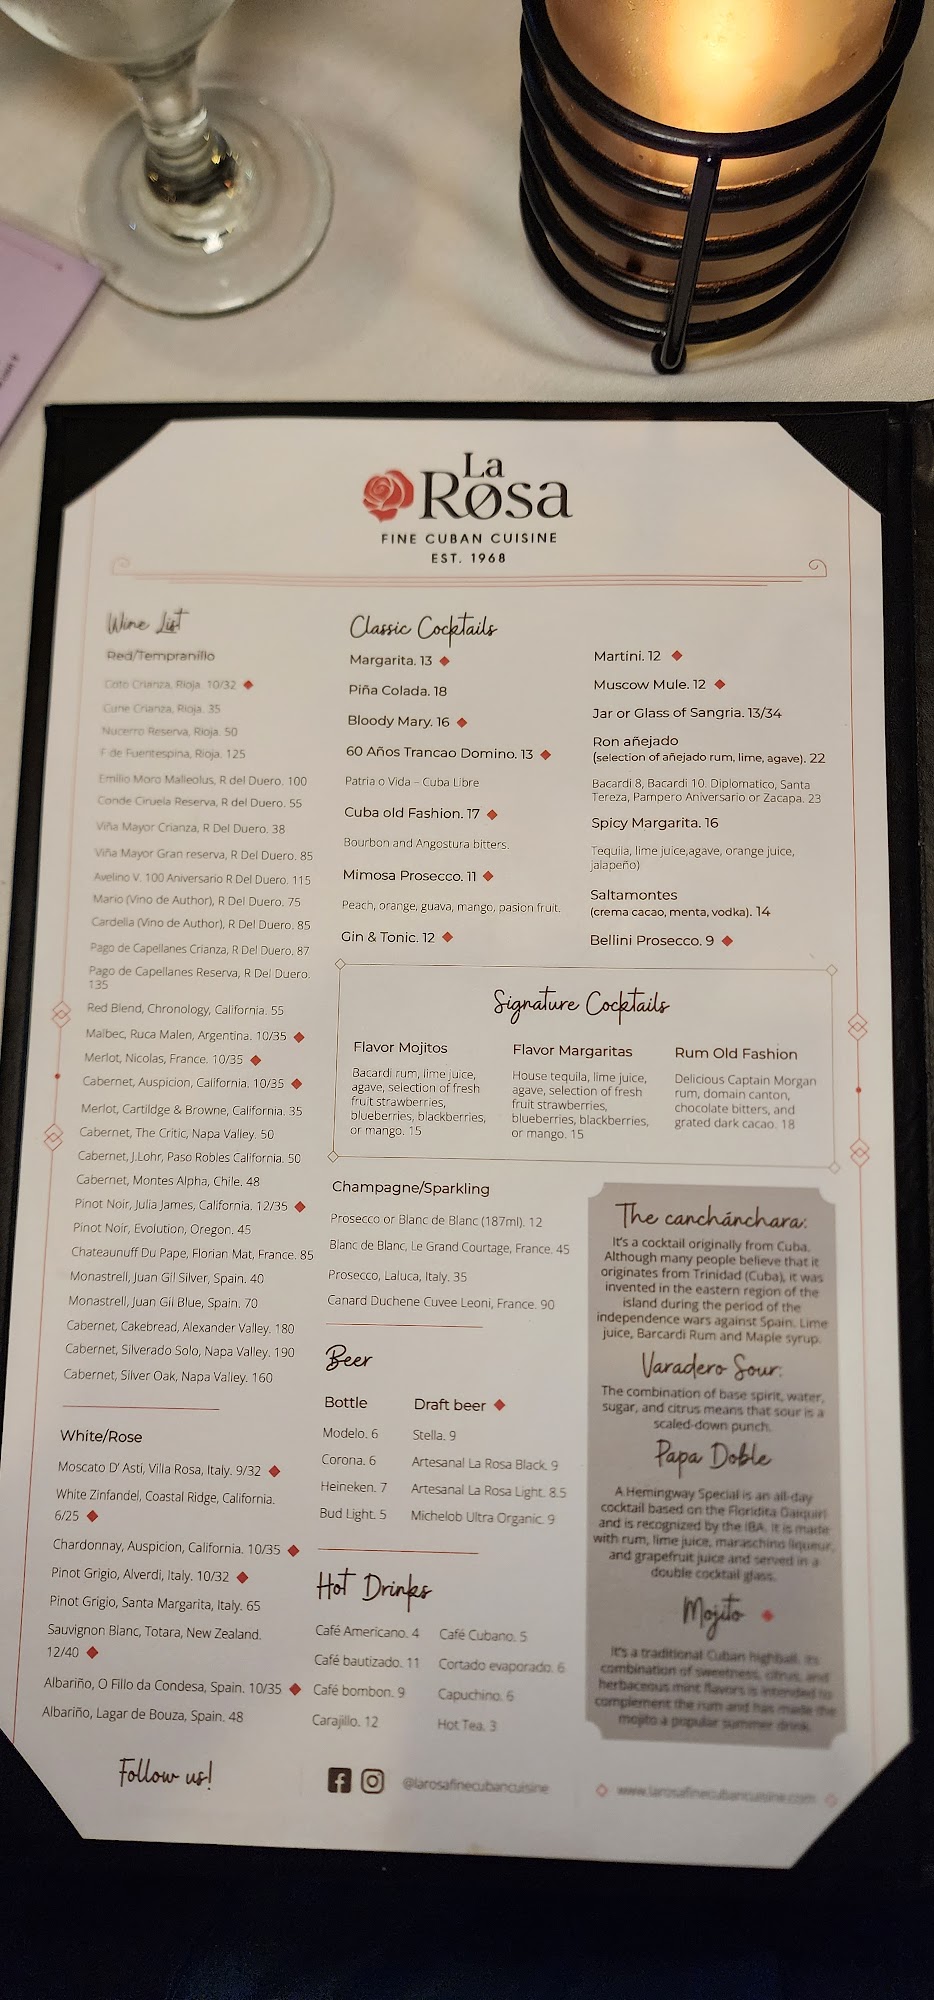 La
Rosa
FINE CUBAN CUISINE
EST. 1968
Wine List
Red/Tempranillo
Coto Crianza, Rioja. 10/32
Cune Crianza, Rioja. 35
Nucerro Reserva, Rioja. 50
F de Fuentespina, Rioja. 125
Emilio Moro Malleolus, R del Duero. 100
Conde Ciruela Reserva, R del Duero. 55
Viña Mayor Crianza, R Del Duero. 38
Viña Mayor Gran reserva, R Del Duero. 85
Avelino V. 100 Aniversario R Del Duero. 115
Mario (Vino de Author), R Del Duero. 75
Cardella (Vino de Author), R Del Duero. 85
Pago de Capellanes Crianza, R Del Duero. 87
Pago de Capellanes Reserva, R Del Duero.
135
Red Blend, Chronology, California. 55
Malbec, Ruca Malen, Argentina. 10/35
Merlot, Nicolas, France. 10/35
Cabernet, Auspicion, California. 10/35
Merlot, Cartildge & Browne, California. 35
Cabernet, The Critic, Napa Valley. 50
Cabernet, J.Lohr, Paso Robles California. 50
Cabernet, Montes Alpha, Chile. 48
Pinot Noir, Julia James, California. 12/35
Pinot Noir, Evolution, Oregon. 45
Chateaunuff Du Pape, Florian Mat, France. 85
Monastrell, Juan Gil Silver, Spain. 40
Monastrell, Juan Gil Blue, Spain. 70
Cabernet, Cakebread, Alexander Valley. 180
Cabernet, Silverado Solo, Napa Valley. 190
Cabernet, Silver Oak, Napa Valley. 160
White/Rose
Moscato D' Asti, Villa Rosa, Italy. 9/32
White Zinfandel, Coastal Ridge, California.
6/25
Chardonnay, Auspicion, California. 10/35
Pinot Grigio, Alverdi, Italy. 10/32
Pinot Grigio, Santa Margarita, Italy. 65
Sauvignon Blanc, Totara, New Zealand.
12/40
Albariño, O Fillo da Condesa, Spain. 10/35
Albariño, Lagar de Bouza, Spain. 48
Classic Cocktails
Margarita. 13
Piña Colada. 18
Bloody Mary. 16
60 Años Trancao Domino. 13
Patria o Vida – Cuba Libre
Cuba old Fashion. 17
Bourbon and Angostura bitters.
Mimosa Prosecco. 11
Peach, orange, guava, mango, pasion fruit.
Gin & Tonic. 12
Martini. 12
Muscow Mule. 12
Jar or Glass of Sangria. 13/34
Ron añejado
(selection of añejado rum, lime, agave). 22
Bacardi 8, Bacardi 10. Diplomatico, Santa
Tereza, Pampero Aniversario or Zacapa. 23
Spicy Margarita. 16
Tequila, lime juice,agave, orange juice,
jalapeño)
Saltamontes
(crema cacao, menta, vodka). 14
Bellini Prosecco. 9
Signature Cocktails
Flavor Mojitos
Bacardi rum, lime juice,
agave, selection of fresh
fruit strawberries,
blueberries, blackberries,
or mango. 15
Flavor Margaritas
House tequila, lime juice,
agave, selection of fresh
fruit strawberries,
blueberries, blackberries,
or mango. 15
Rum Old Fashion
Delicious Captain Morgan
rum, domain canton,
chocolate bitters, and
grated dark cacao. 18
Champagne/Sparkling
Prosecco or Blanc de Blanc (187ml). 12
Blanc de Blanc, Le Grand Courtage, France. 45
Prosecco, Laluca, Italy. 35
Canard Duchene Cuvee Leoni, France. 90
Beer
Bottle
Modelo. 6
Corona. 6
Heineken. 7
Bud Light. 5
Draft beer
Stella. 9
Artesanal La Rosa Black. 9
Artesanal La Rosa Light. 8.5
Michelob Ultra Organic. 9
Hot Drinks
Café Americano. 4
Café bautizado. 11
Café bombon. 9
Carajillo. 12
Café Cubano. 5
Cortado evaporado. 6
Capuchino. 6
Hot Tea. 3
The canchánchara:
It's a cocktail originally from Cuba.
Although many people believe that it
originates from Trinidad (Cuba), it was
invented in the eastern region of the
island during the period of the
independence wars against Spain. Lime
juice, Barcardi Rum and Maple syrup.
Varadero Sour:
The combination of base spirit, water,
sugar, and citrus means that sour is a
scaled-down punch.
Papa Doble
A Hemingway Special is an all-day
cocktail based on the Floridita Daiquiri
and is recognized by the IBA. It is made
with rum, lime juice, maraschino liqueur,
and grapefruit juice and served in a
double cocktail glass.
Mojito
It's a traditional Cuban highball. Its
combination of sweetness, citrus, and
herbaceous mint flavors is intended to
complement the rum and has made the
mojito a popular summer drink.
Follow us!
@larosafinecubancuisine
www.larosafinecubancuisine.com